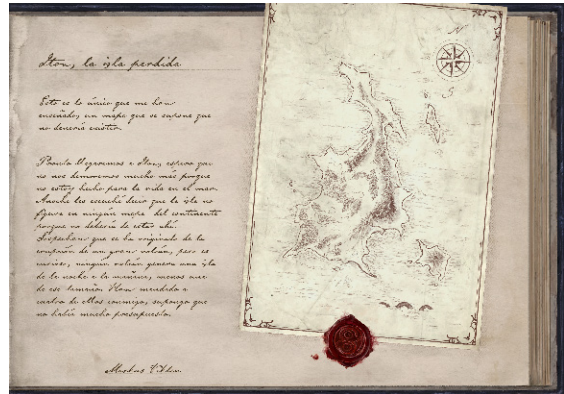 Iton, la isla perdida
Esto es lo único que me han
enseñado, un mapa que se supone que
no debería existir.
Pronto llegaremos a Iton, espero que
no nos demoremos mucho más porque
no estoy hecho para la vida en el mar.
Anoche les escuché decir que la isla no
figura en ningún mapa del continente
porque no debería de estar ahí.
Sospechan que se ha originado de la
erupción de un gran volcán, pero es
ningún volcán genera una isla
de la noche a la mañana, menos una
de ese tamaño. Han mandado a
cuatro de ellos conmigo, supongo que
no había mucho presupuesto.